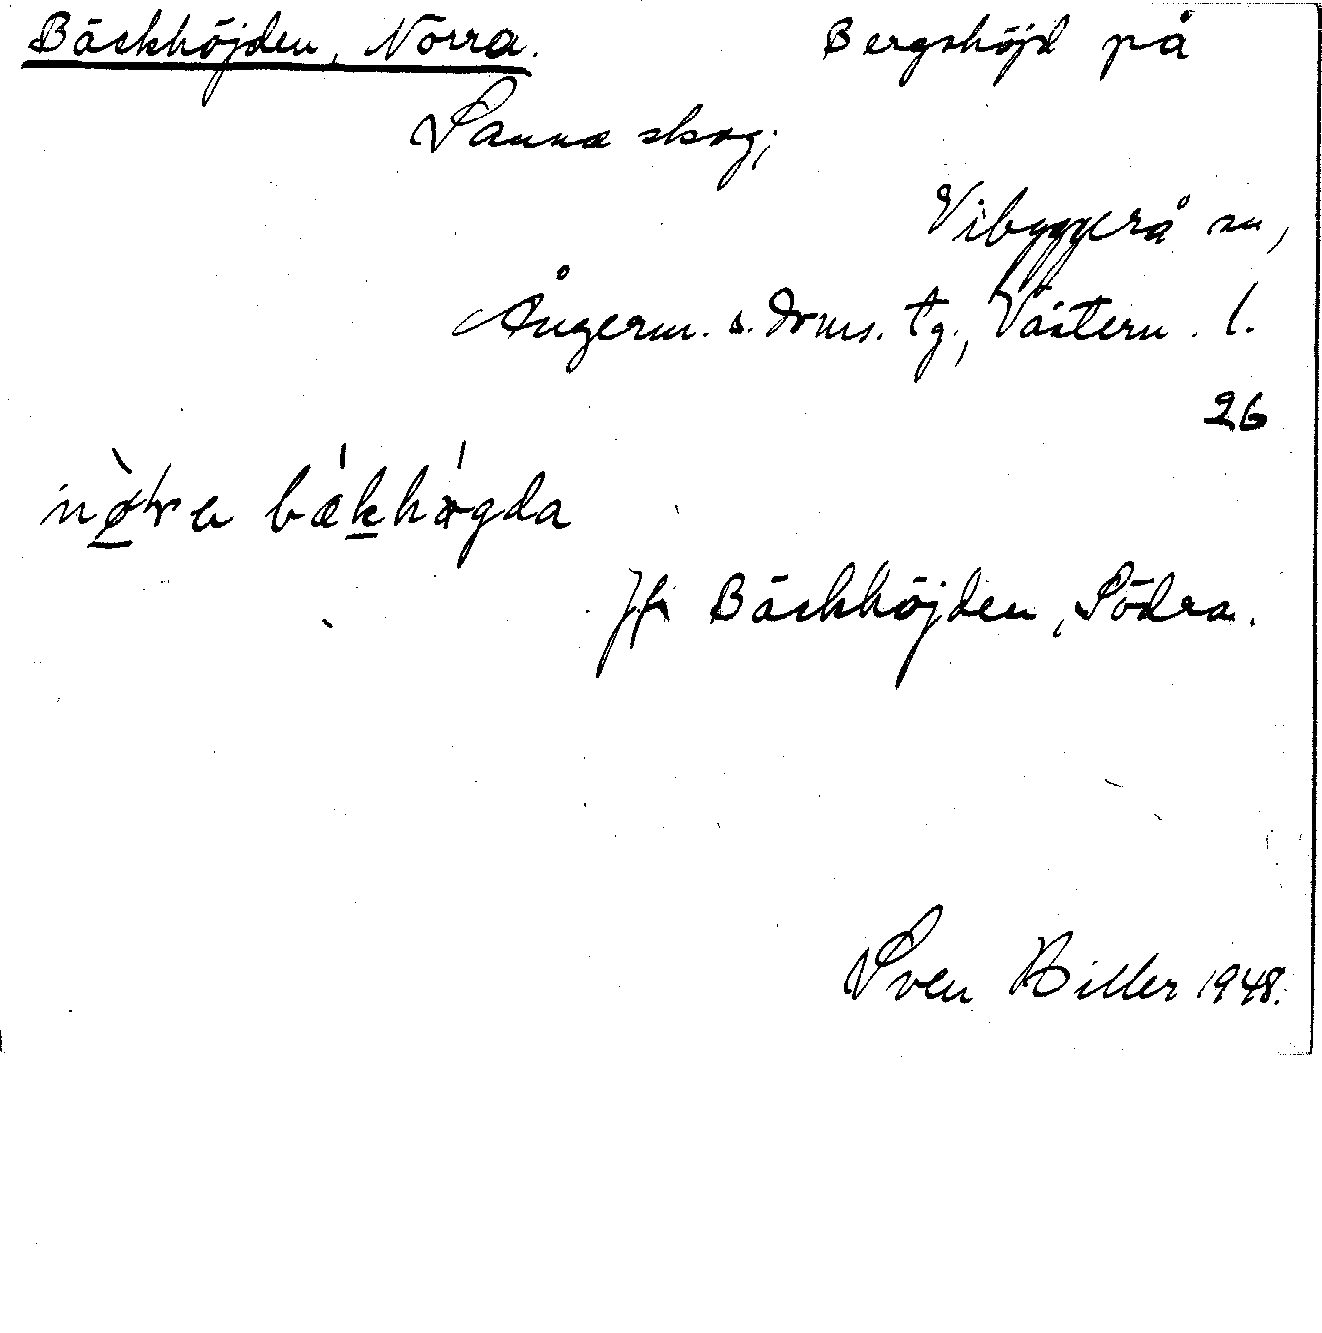 Bäckhöjden, Norra. Bergshöjd på
Sanna skog;
Vibyggerå sn,
Ångerm. s. dms. tg., Västern. l.
26
bækhøgda
Jfr Bäckhöjden, Södra.
Sven Hiller 1948.